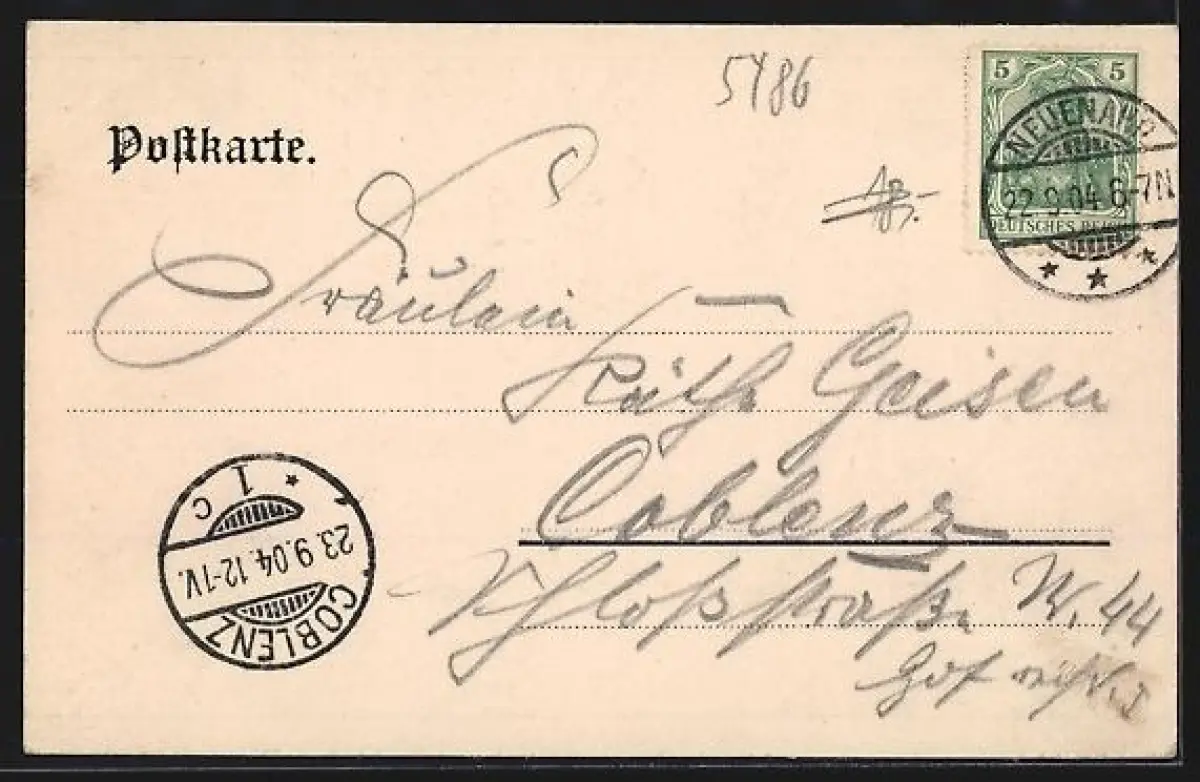 5486
5 5
Postkarte.
NEUENAHR
22.9.04.6-7N
DEUTSCHES REICH
Fräulein
Käthe Geisen
Coblenz
Schloßstraße Nr. 44
Hof
COBLENZ
23.9.04.12-1V.
* 1 c